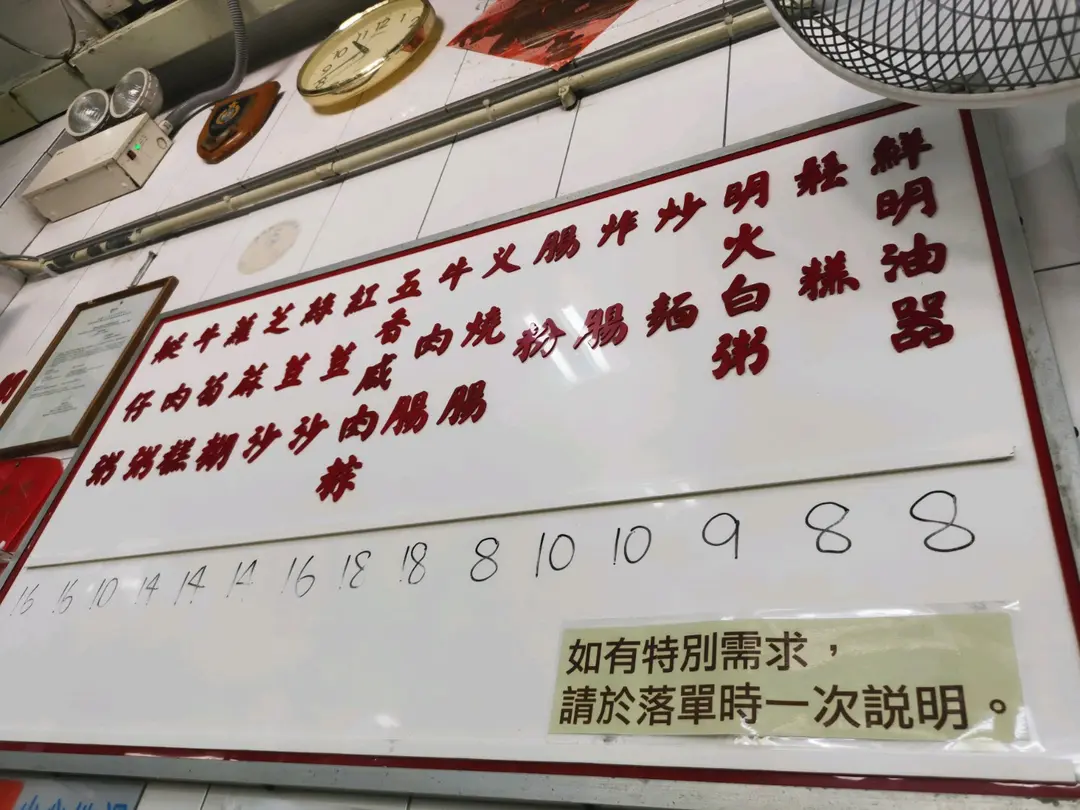 鮮明油器
鬆糕
明火白粥
炒麵
炸腸
腸粉
义燒腸
牛肉腸
五香咸肉粽
紅荳沙
綠荳沙
芝蔴糊
蘿蔔糕
牛肉粥
艇仔粥
16 16 10 14 14 14 16 18 18 8 10 10 9 8 8
如有特別需求，
請於落單時一次説明。